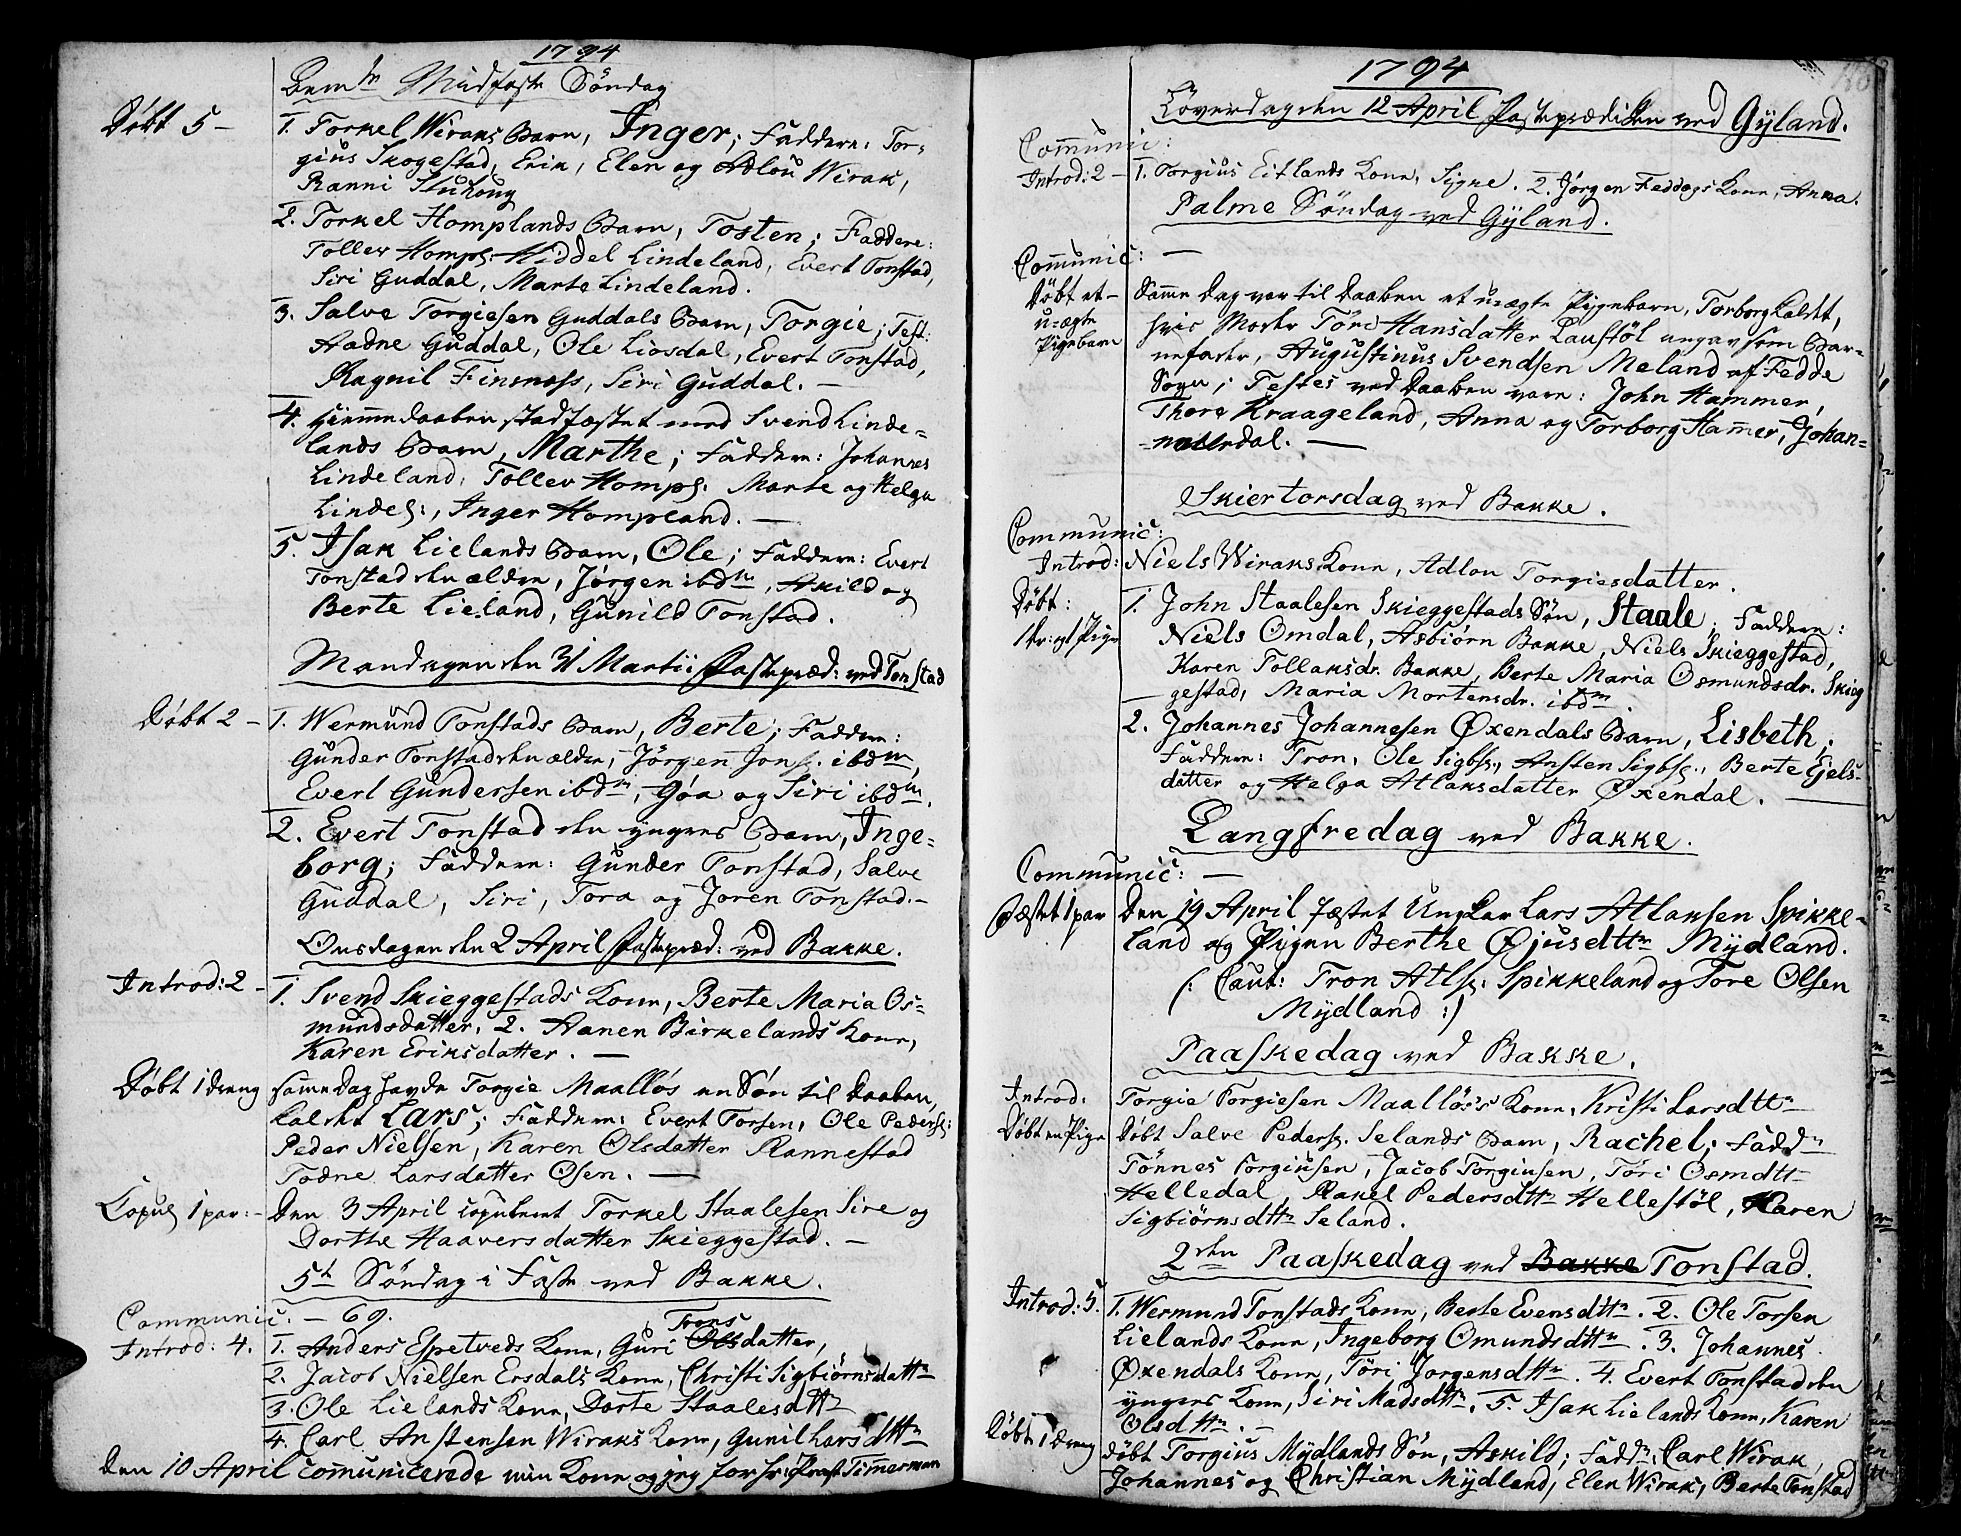 1794
Dem tr Midfaste Söndag
Döbt 5 –
1. Torkel Wiraks Barn, Inger; Faddere: Tor-
gius Skogestad, Erik, Elen og Adlou Wirak,
Ranni Stuhoug
2. Torkel Homplands Barn, Tosten; Faddere:
Tollev Homps. Hiddel Lindeland, Evert Tonstad,
Siri Guddal, Marte Lindeland.
3. Salve Torgiesen Guddals Barn, Torgie; Test:
Aadne Guddal, Ole Liosdal, Evert Tonstad,
Ragnil Finsnæss, Siri Guddal. –
4. Hiemmedaaben stadfæstet med Svend Linde-
lands Barn, Marthe; Faddere: Johannes
Lindeland, Tollev Homps. Marte og Helga
Lindel:, Inger Hompland. –
5. Isak Lielands Barn, Ole; Faddere: Evert
Tonstad den ældre, Jörgen ibdm, Askild og
Berte Lieland, Gunild Tonstad.
Mandagen den 31 Martii Fastepræd: ved Tonstad
Döbt 2 –
1. Wermund Tonstads Barn, Berte; Faddere:
Gunder Tonstad den ældre, Jörgen Jons. ibdm,
Evert Gundersen ibdm, Göa og Siri ibdm.
2. Evert Tonstad den yngres Barn, Inge-
borg; Faddere: Gunder Tonstad, Salve
Guddal, Siri, Tora og Joren Tonstad. –
Onsdagen den 2 April Fastepræd: ved Bakke.
Introd: 2 –
1. Svend Skieggestads Kone, Berte Maria Os-
mundsdatter. 2. Aanen Birkelands Kone,
Karen Eriksdatter. –
Döbt 1 dreng
samme dag havde Torgie Maallös en Sön til Daaben,
kaldet Lars; Faddere: Evert Torsen, Ole Peders:
Peder Nielsen, Karen Olsdatter Rannestad
Todne Larsdatter Osen. –
Copul 1 par: –
Den 3 April copuleret Torkel Staalesen Sire og
Dorthe Haaversdatter Skieggestad. –
5t Söndag i Faste ved Bakke.
Communic. – 69.
Introd: 4.
1. Anders Espetveds Kone, Guri Trons Olsdatter,
2. Jacob Nielsen Ersdals Kone, Christi Sigbiörnsdattr
3. Ole Lielands Kone, Dorte Staalesdttr
4. Carl Anstensen Wiraks Kone, Gunil Larsdttr
Den 10 April communicerede min Kone og jeg for hr: Provst Timmerman
1794
Löverdagen den 12 April Fasteprædiken ved Gyland.
Communic:
Introd: 2 – 1. Torgius Eitlands Kone, Signe. 2. Jörgen Feddegs Kone, Anna.
Palme Söndag ved Gyland.
Communic: –
Döbt et
uægte
Pigebarn
Samme dag var til Daaben et uægte Pigebarn, Torborg kaldet,
hvis Moder Töri Hansdatter Laustöl angav som Bar-
nefader, Augustinus Svendsen Meland af Fedde
Sogn; Testes ved Daaben vare: John Hammer,
Thore Kraageland, Anna og Torborg Hamer, Johan-
–
Skiertorsdag ved Bakke.
Communic:
Introd: Niels Wiraks Kone, Adlou Torgiesdatter.
Döbt:
1 dr: og 1 Pige
1. John Staalesen Skieggestads Sön, Staale; Faddere:
Niels Omdal, Asbiörn Bakke, Niels Skieggestad,
Karen Tollaksdr. Bakke, Berte Maria Osmundsdr. Skieg
gestad, Maria Mortensdr. ibdm.
2. Johannes Johannesen Øxendals Barn, Lisbeth;
Faddere: Tron, Ole Sigbs., Ansten Sigbs., Berte Ejels-
datter og Helga Atlaksdatter Øxendal. –
Langfredag ved Bakke.
Communic: –
Fæstet 1 par
Den 19 April fæstet Ungkar Lars Atlaksen Spikke-
land og Pigen Berthe Øjusdttr Mydland.
(: Caut: Tron Atls: Spikkeland og Tore Olsen
Mydland :)
Paaskedag ved Bakke.
Introd:
Torgie Torgiesen Maallös's Kone, Kristi Larsdttr
Döbt en Pige
Döbt Salve Peders. Selands Barn, Rachel; Faddr
Tönnes Torgiusen, Jacob Torgiusen, Töri Osmdttr
Helledal, Rakel Pedersdttr Hellestöl, Karen
Sigbiörnsdttr Seland.
2den Paaskedag ved Bakke Tonstad.
Introd: 5.
1. Wermund Tonstads Kone, Berte Evensdttr. 2. Ole Torsen
Lielands Kone, Ingeborg Omundsdttr. 3. Johannes
Øxendals Kone, Töri Jörgensdttr. 4. Evert Tonstad den
yngres Kone, Siri Madsdttr. 5. Isak Lielands Kone, Karen
Olsdttr. –
Döbt 1 dreng
Döbt Torgius Mydlands Sön, Askild; Faddr. Carl Wirak,
Johannes og Christian Mydland, Elen Wirak, Berte Tonstad